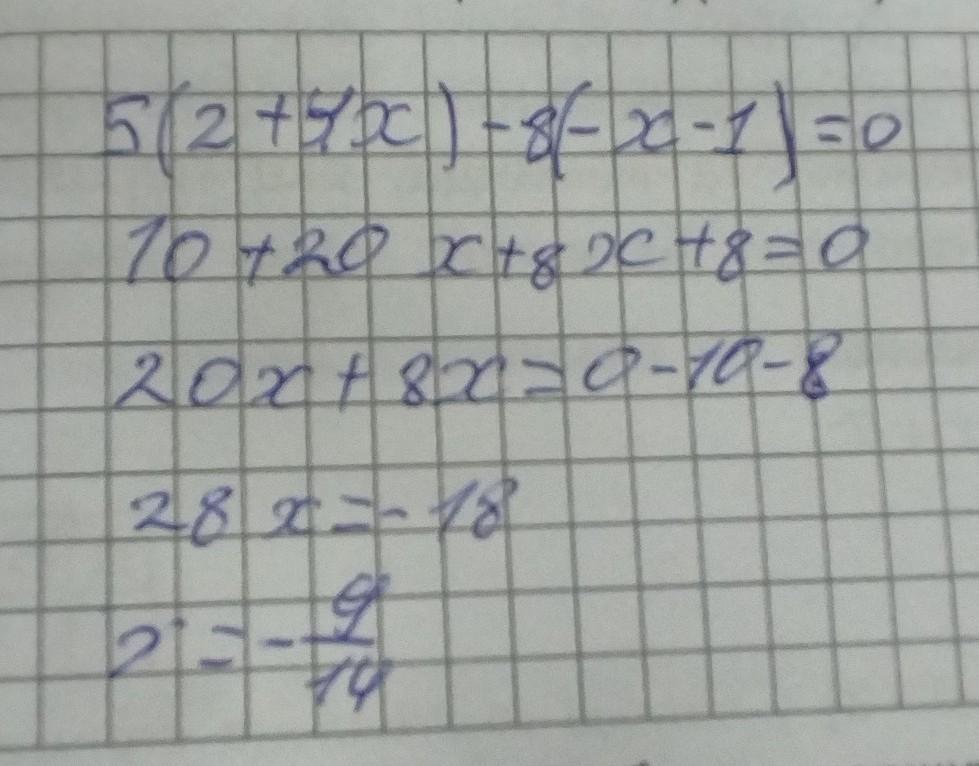 5(2+4x)-8(-x-1)=0
10+20x+8x+8=0
20x+8x=0-10-8
28x=-18
x=-9/14